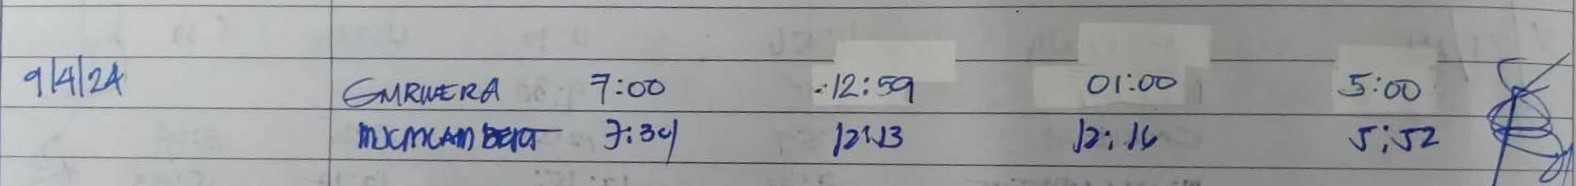 9/4/24 GMRWERA 7:00 12:59 01:00 5:00
7:34 12:13 12:16 5:52